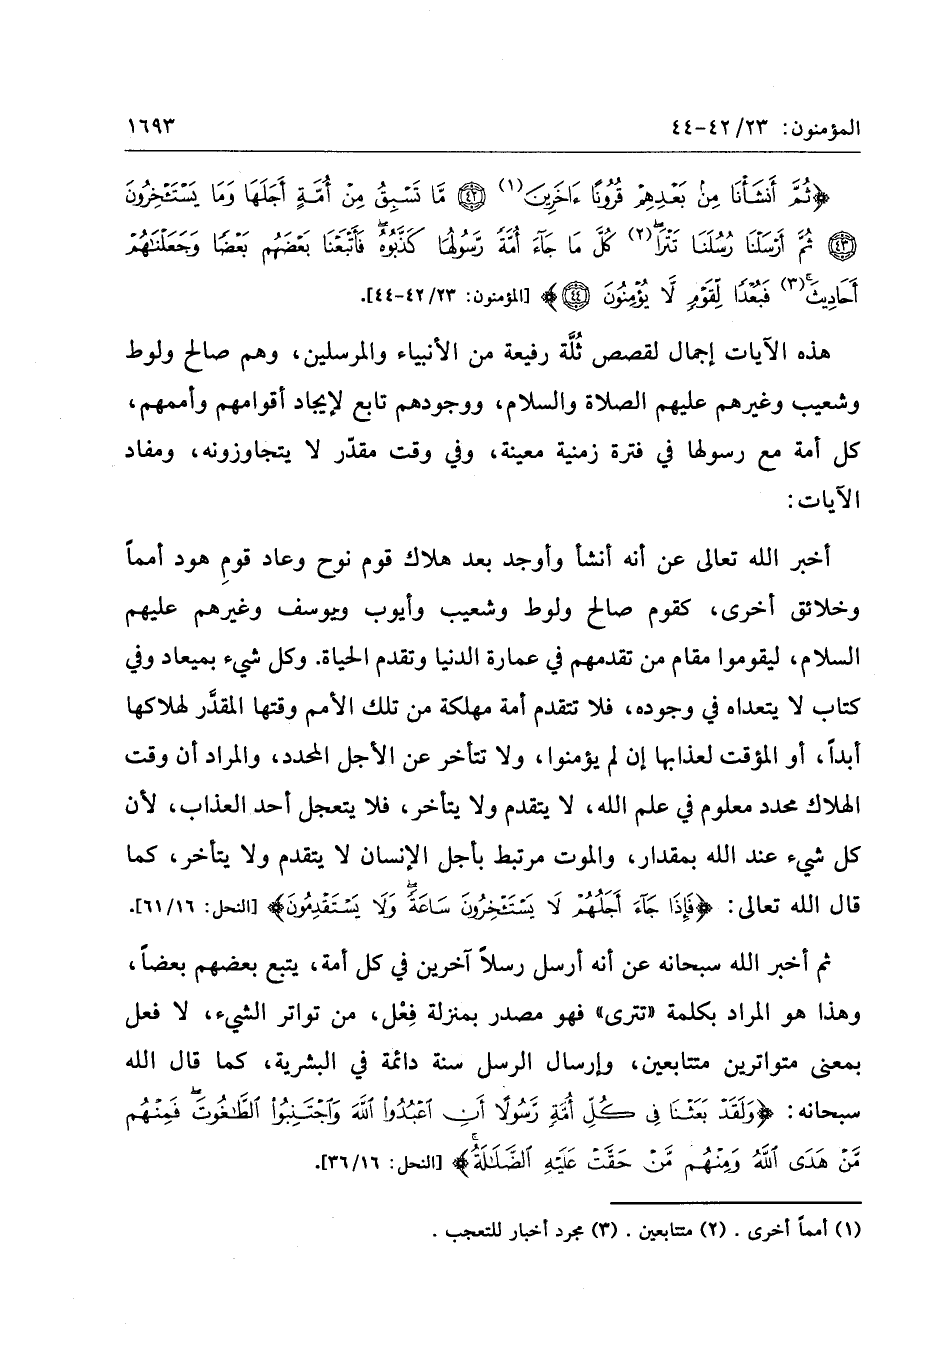 المؤمنون: ٢٣/ ٤٢-٤٤ ١٦٩٣
﴿ثُمَّ أَنشَأْنَا مِنۢ بَعْدِهِمْ قُرُونًا ءَاخَرِينَ(١) ۝٤٢ مَّا تَسْبِقُ مِنْ أُمَّةٍ أَجَلَهَا وَمَا يَسْتَـْٔخِرُونَ
۝٤٣ ثُمَّ أَرْسَلْنَا رُسُلَنَا تَتْرَاۖ(٢) كُلَّ مَا جَآءَ أُمَّةً رَّسُولُهَا كَذَّبُوهُۖ فَأَتْبَعْنَا بَعْضَهُم بَعْضًا وَجَعَلْنَـٰهُمْ
أَحَادِيثَۚ(٣) فَبُعْدًا لِّقَوْمٍ لَّا يُؤْمِنُونَ ۝٤٤﴾ [المؤمنون: ٢٣/ ٤٢-٤٤].
هذه الآيات إجمال لقصص ثُلَّة رفيعة من الأنبياء والمرسلين، وهم صالح ولوط
وشعيب وغيرهم عليهم الصلاة والسلام، ووجودهم تابع لإيجاد أقوامهم وأممهم،
كل أمة مع رسولها في فترة زمنية معينة، وفي وقت مقدّر لا يتجاوزونه، ومفاد
الآيات:
أخبر الله تعالى عن أنه أنشأ وأوجد بعد هلاك قوم نوح وعاد قومِ هود أمماً
وخلائق أخرى، كقوم صالح ولوط وشعيب وأيوب ويوسف وغيرهم عليهم
السلام، ليقوموا مقام من تقدمهم في عمارة الدنيا وتقدم الحياة. وكل شيء بميعاد وفي
كتاب لا يتعداه في وجوده، فلا تتقدم أمة مهلكة من تلك الأمم وقتها المقدَّر لهلاكها
أبداً، أو المؤقت لعذابها إن لم يؤمنوا، ولا تتأخر عن الأجل المحدد، والمراد أن وقت
الهلاك محدد معلوم في علم الله، لا يتقدم ولا يتأخر، فلا يتعجل أحد العذاب، لأن
كل شيء عند الله بمقدار، والموت مرتبط بأجل الإنسان لا يتقدم ولا يتأخر، كما
قال الله تعالى: ﴿فَإِذَا جَآءَ أَجَلُهُمْ لَا يَسْتَـْٔخِرُونَ سَاعَةًۖ وَلَا يَسْتَقْدِمُونَ﴾ [النحل: ١٦/ ٦١].
ثم أخبر الله سبحانه عن أنه أرسل رسلاً آخرين في كل أمة، يتبع بعضهم بعضاً،
وهذا هو المراد بكلمة «تترى» فهو مصدر بمنزلة فِعْل، من تواتر الشيء، لا فعل
بمعنى متواترين متتابعين، وإرسال الرسل سنة دائمة في البشرية، كما قال الله
سبحانه: ﴿وَلَقَدْ بَعَثْنَا فِى كُلِّ أُمَّةٍ رَّسُولًا أَنِ ٱعْبُدُوا۟ ٱللَّهَ وَٱجْتَنِبُوا۟ ٱلطَّـٰغُوتَۖ فَمِنْهُم
مَّنْ هَدَى ٱللَّهُ وَمِنْهُم مَّنْ حَقَّتْ عَلَيْهِ ٱلضَّلَـٰلَةُۚ﴾ [النحل: ١٦/ ٣٦].
(١) أمماً أخرى . (٢) متتابعين . (٣) مجرد أخبار للتعجب .